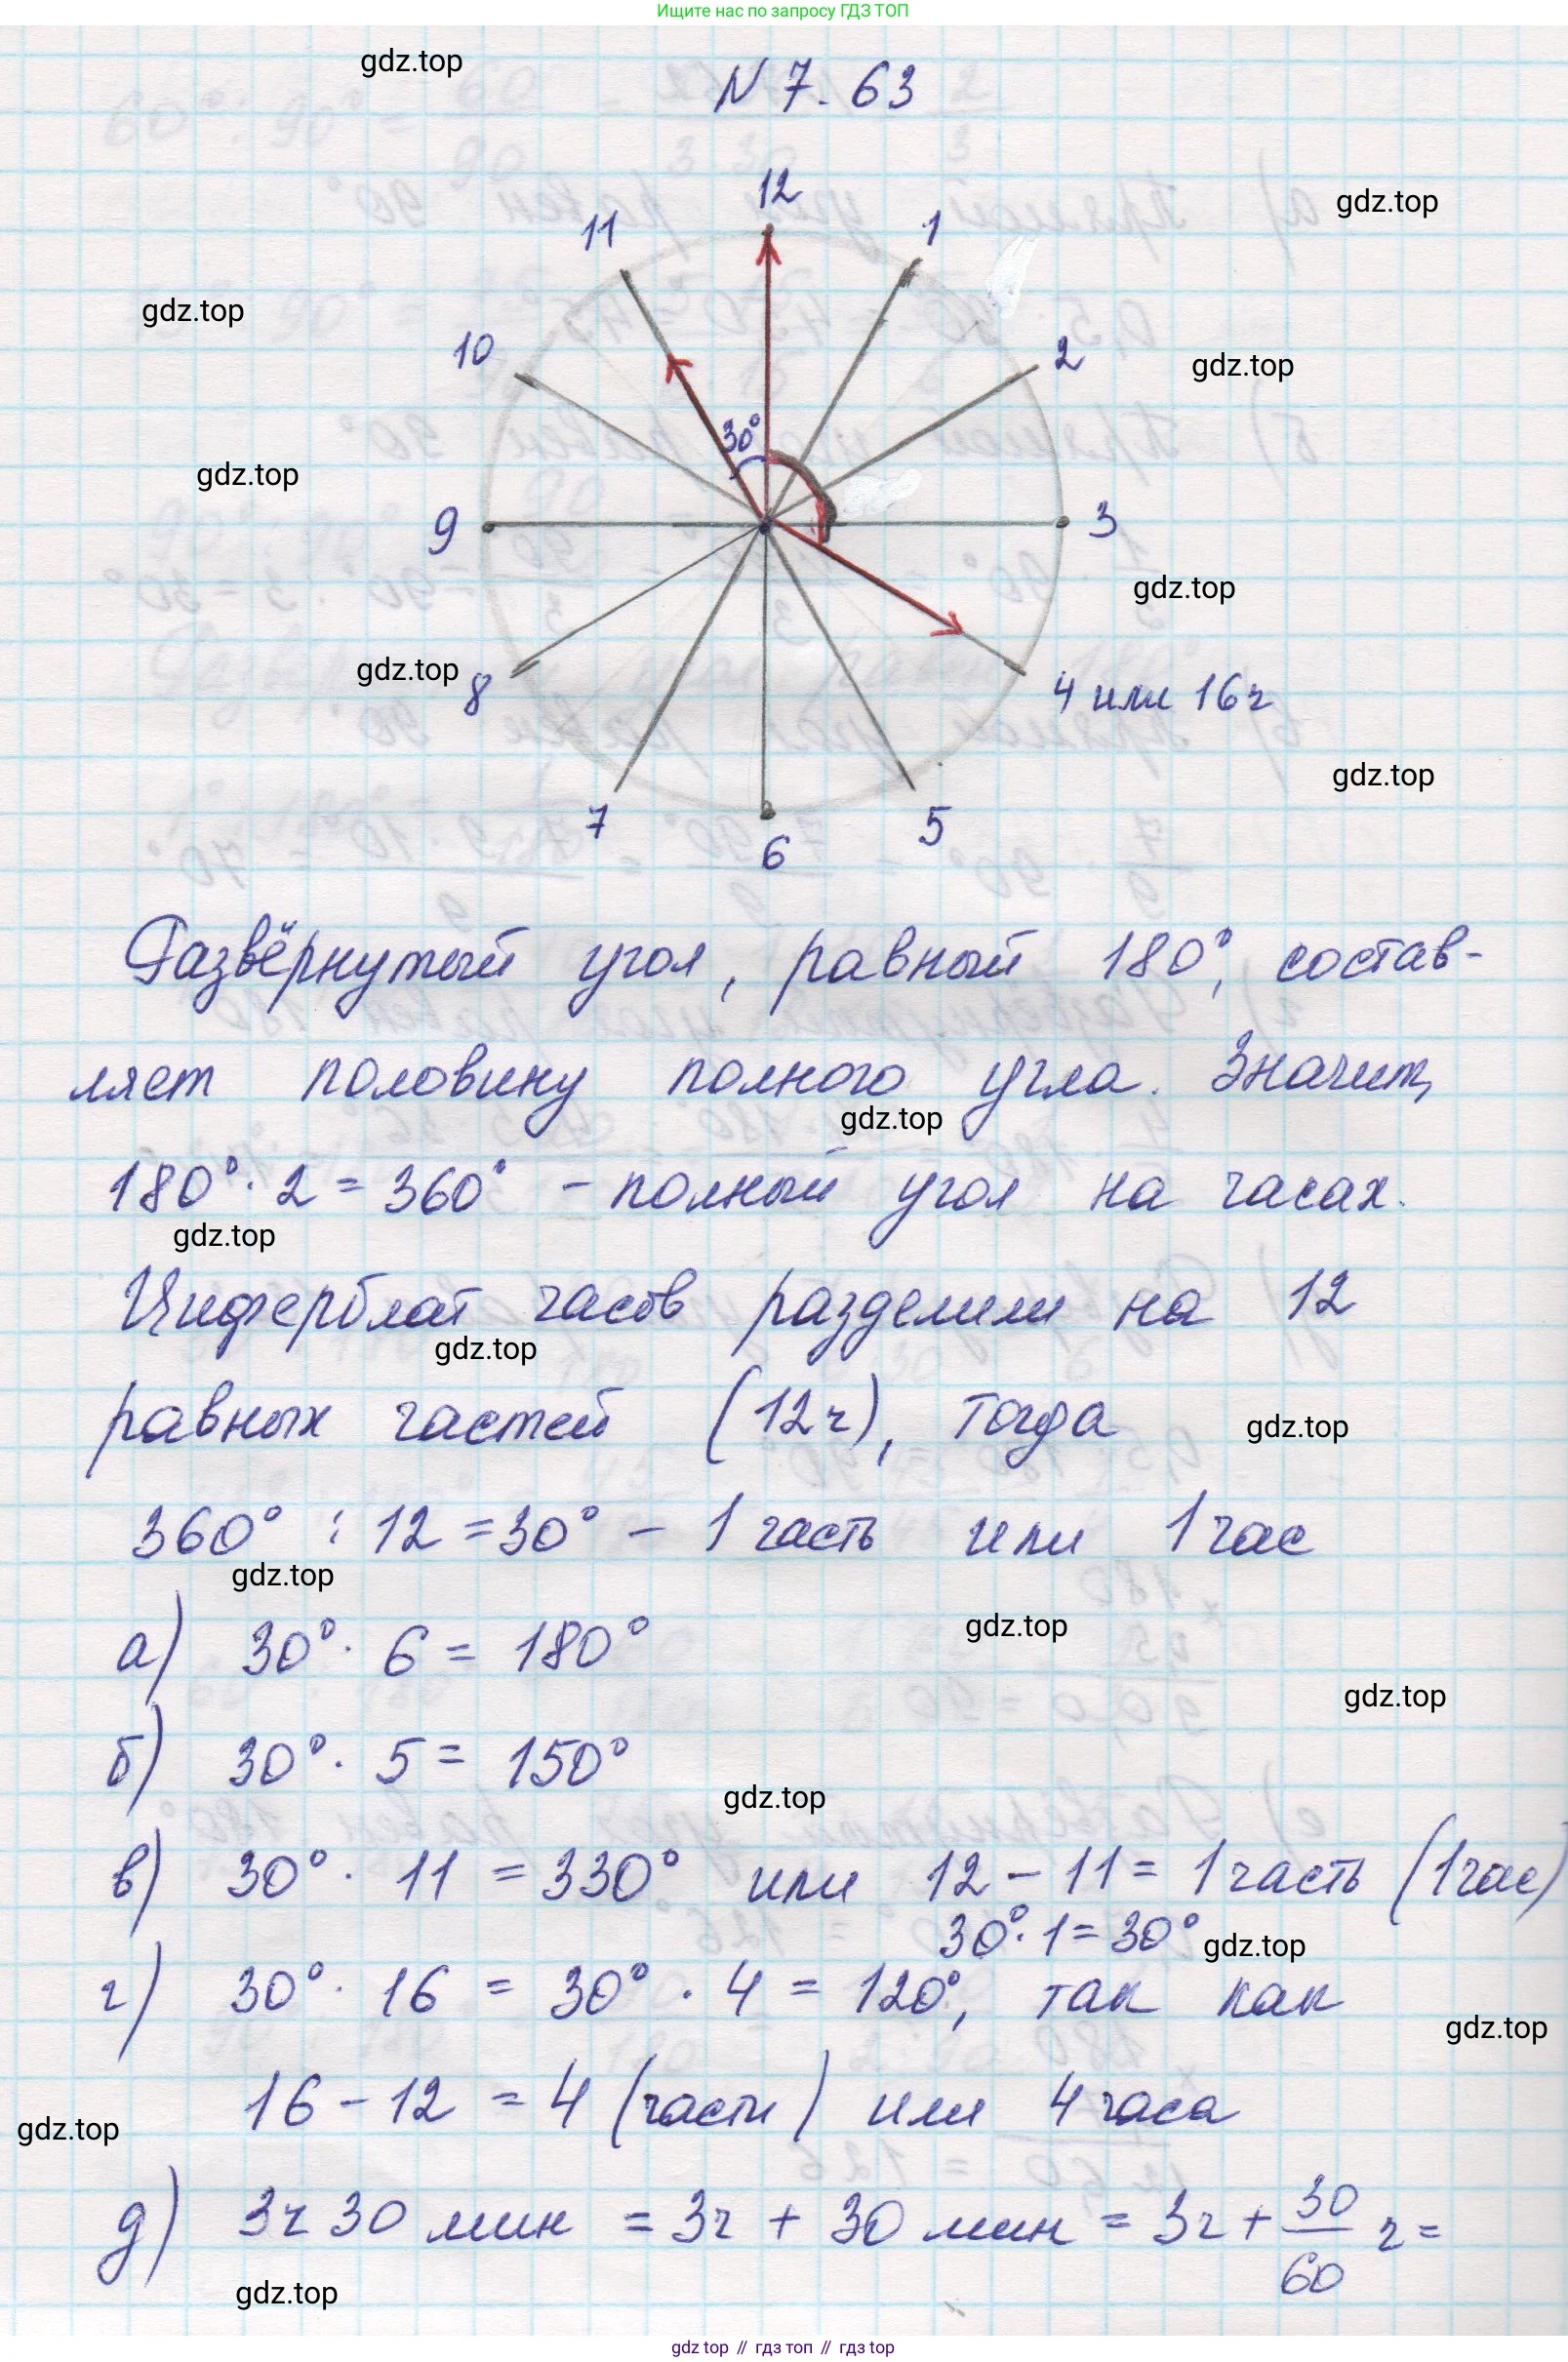 Ищите нас по запросу ГДЗ ТОП
gdz.top
N 7.63
12
gdz.top
11
1
gdz.top
10
2
gdz.top
30°
gdz.top
9
3
gdz.top
gdz.top
8
4 или 16ч
gdz.top
7
5
6
Развёрнутый угол, равный 180°, состав-
ляет половину полного угла. Значит,
gdz.top
180° · 2 = 360° - полный угол на часах.
gdz.top
Циферблат часов разделили на 12
gdz.top
равных частей (12ч), тогда
gdz.top
360° : 12 = 30° - 1 часть или 1 час
gdz.top
а) 30° · 6 = 180°
gdz.top
gdz.top
б) 30° · 5 = 150°
gdz.top
в) 30° · 11 = 330° или 12 - 11 = 1 часть (1 час)
30° · 1 = 30°
gdz.top
г) 30° · 16 = 30° · 4 = 120°, так как
gdz.top
16 - 12 = 4 (части) или 4 часа
gdz.top
д) 3ч 30 мин = 3ч + 30 мин = 3ч + 30/60 ч =
gdz.top
gdz top // гдз топ // гдз top